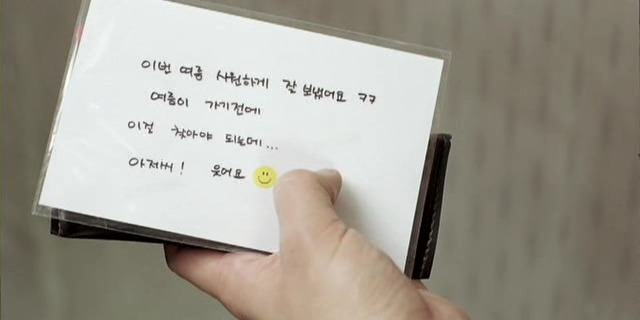 이번 여름 시원하게 잘 보냈어요 ㅋㅋ
여름이 가기전에
이걸 찾아야 되는데...
아저씨! 웃어요